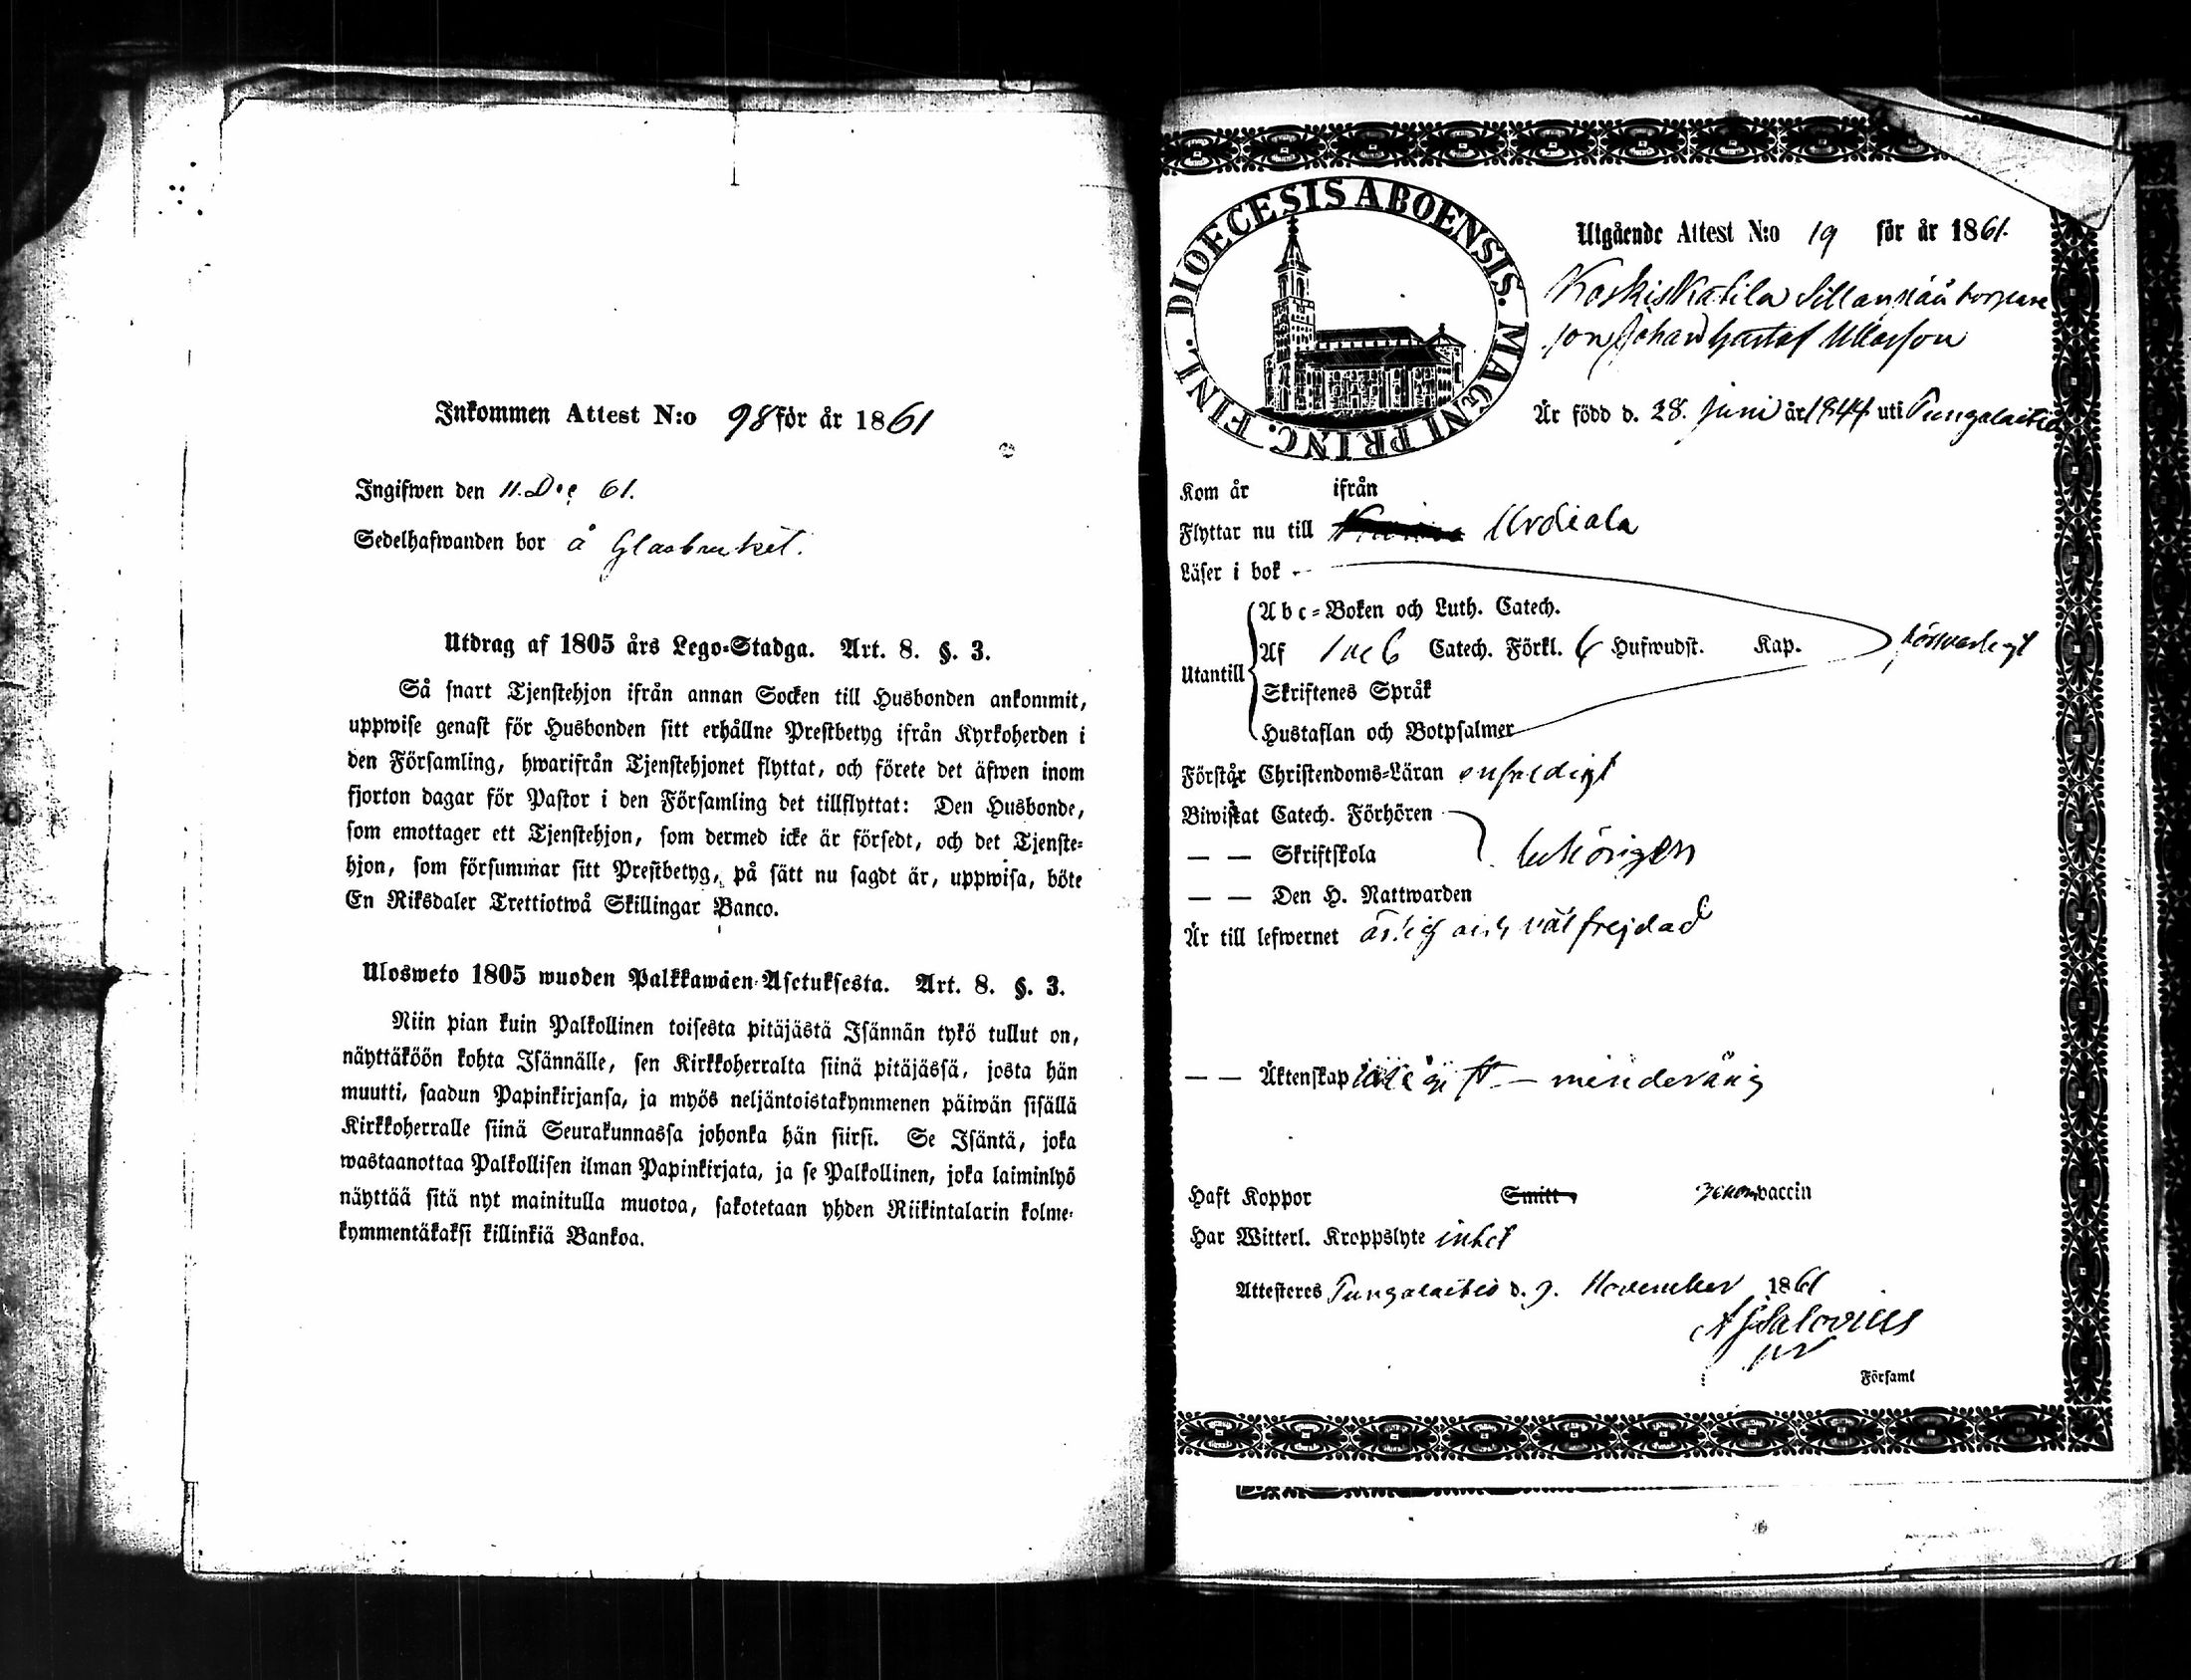 Inkommen Attest N:o 98 för år 1861
Ingifwen den 11. Dec 61.
Sedelhafwanden bor å Glasbruket.
Utdrag af 1805 års Lego-Stadga. Art. 8. §. 3.
Så snart Tjenstehjon ifrån annan Socken till Husbonden ankommit,
uppwise genast för Husbonden sitt erhållne Prestbetyg ifrån Kyrkoherden i
den Församling, hwarifrån Tjenstehjonet flyttat, och förete det äfwen inom
fjorton dagar för Pastor i den Församling det tillflyttat: Den Husbonde,
som emottager ett Tjenstehjon, som dermed icke är försedt, och det Tjenste-
hjon, som försummar sitt Prestbetyg, på sätt nu sagdt är, uppwisa, böte
En Riksdaler Trettiotwå Skillingar Banco.
Ulosweto 1805 wuoden Palkkawäen-Asetuksesta. Art. 8. §. 3.
Niin pian kuin Palkollinen toisesta pitäjästä Isännän tykö tullut on,
näyttäköön kohta Isännälle, sen Kirkkoherralta siinä pitäjässä, josta hän
muutti, saadun Papinkirjansa, ja myös neljäntoistakymmenen päiwän sisällä
Kirkkoherralle siinä Seurakunnassa johonka hän siirsi. Se Isäntä, joka
wastaanottaa Palkollisen ilman Papinkirjata, ja se Palkollinen, joka laiminlyö
näyttää sitä nyt mainitulla muotoa, sakotetaan yhden Riikintalarin kolme-
kymmentäkaksi killinkiä Bankoa.
DIOECESIS ABOENSIS. MAGNI PRINC. FINL.
Utgående Attest N:o 19 för år 1861.
Koskis Katila
son Johan Gustaf
Är född d. 28. Juni år 1844 uti Tungalaitio
Kom år ifrån
Flyttar nu till Urdiala
Läser i bok
Abc-Boken och Luth. Catech.
Utantill Af 1 ac 6 Catech. Förkl. 6 Hufwudst. Kap. försvarligt
Skriftenes Språk
Hustaflan och Botpsalmer
Förstår Christendoms-Läran enfaldigt
Biwistat Catech. Förhören
— — Skriftskola behörigen
— — Den H. Nattwarden
Är till lefwernet ärlig och välfrejdad
— — Äktenskap icke gift – minderårig
Haft Koppor Smitt vaccin
Har Witterl. Kroppslyte intet
Attesteres Tungalaitio d. 9. November 1861
A G Salovius
Församl